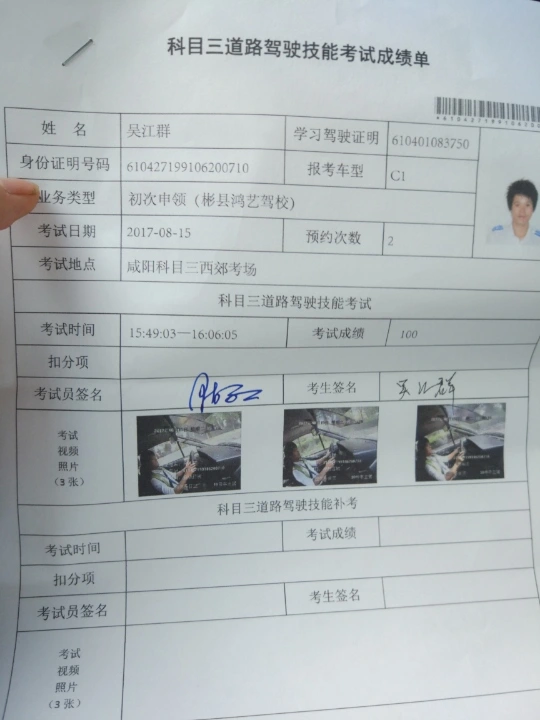 科目三道路驾驶技能考试成绩单
姓 名 吴江群 学习驾驶证明 610401083750
身份证明号码 610427199106200710 报考车型 C1
业务类型 初次申领（彬县鸿艺驾校）
考试日期 2017-08-15 预约次数 2
考试地点 咸阳科目三西郊考场
科目三道路驾驶技能考试
考试时间 15:49:03—16:06:05 考试成绩 100
扣分项
考试员签名 考生签名 吴江群
考试
视频
照片
（3 张）
科目三道路驾驶技能补考
考试时间 考试成绩
扣分项
考试员签名 考生签名
考试
视频
照片
（3 张）